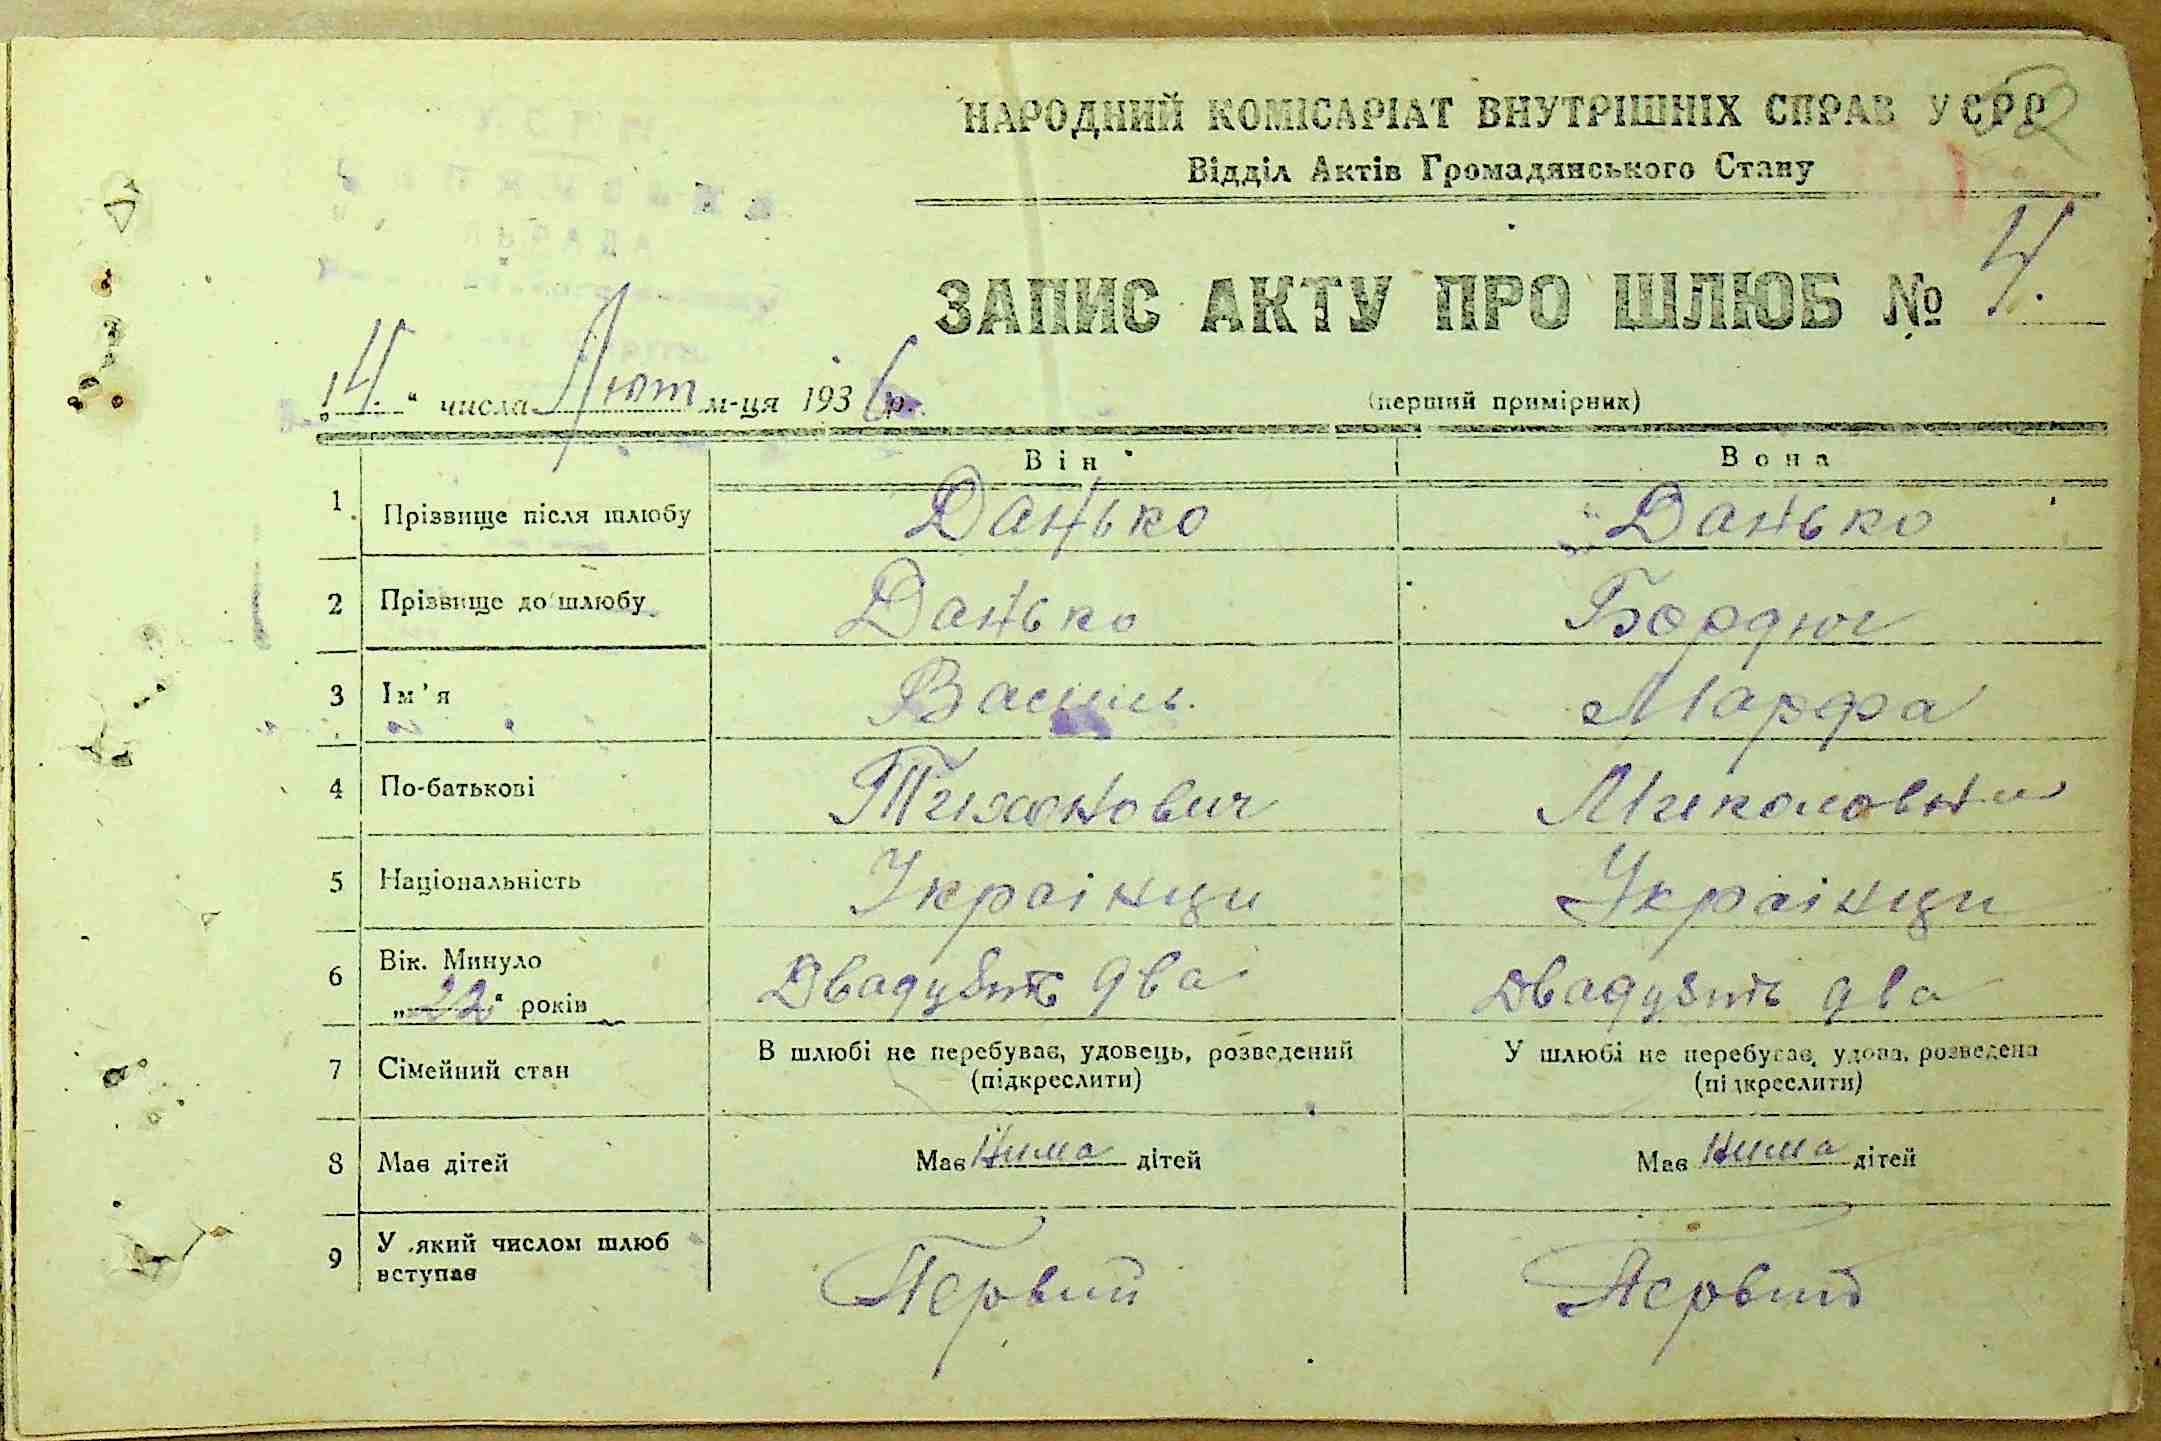 НАРОДНИЙ КОМІСАРІАТ ВНУТРІШНІХ СПРАВ УСРР
Відділ Актів Громадянського Стану
ЗАПИС АКТУ ПРО ШЛЮБ № 4.
„4.“ числа Лют м-ця 1936 р.
(перший примірник)
Він Вона
1 Прізвище після шлюбу Данько Данько
2 Прізвище до шлюбу Данько Бордюг
3 Ім'я Василь Марфа
4 По-батькові Тихонович Миколовни
5 Національність Україници Україници
6 Вік. Минуло „22“ років Двадцять два Двадцять два
7 Сімейний стан В шлюбі не перебуває, удовець, розведений (підкреслити) У шлюбі не перебуває, удова, розведена (підкреслити)
8 Має дітей Має Нима дітей Має Нима дітей
9 У який числом шлюб вступає Первий Первий